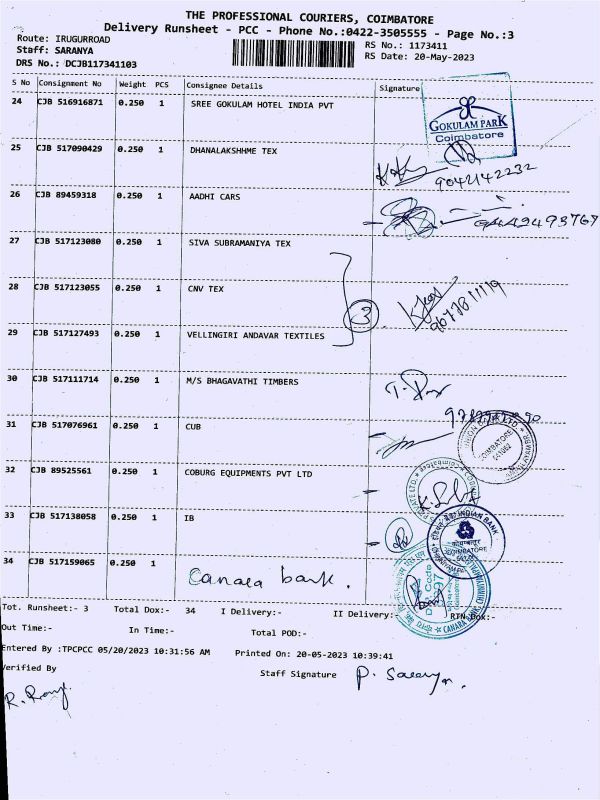 THE PROFESSIONAL COURIERS, COIMBATORE
Delivery Runsheet - PCC - Phone No.:0422-3505555 - Page No.:3
Route: IRUGURROAD
Staff: SARANYA
RS No.: 1173411
DRS No.: DCJB117341103
RS Date: 20-May-2023
S No Consignment No Weight PCS Consignee Details Signature
24 CJB 516916871 0.250 1 SREE GOKULAM HOTEL INDIA PVT
GOKULAM PARK
Coimbatore
25 CJB 517090429 0.250 1 DHANALAKSHHME TEX
9042142232
26 CJB 89459318 0.250 1 AADHI CARS
27 CJB 517123080 0.250 1 SIVA SUBRAMANIYA TEX
28 CJB 517123055 0.250 1 CNV TEX
3
29 CJB 517127493 0.250 1 VELLINGIRI ANDAVAR TEXTILES
30 CJB 517111714 0.250 1 M/S BHAGAVATHI TIMBERS
31 CJB 517076961 0.250 1 CUB
COIMBATORE
32 CJB 89525561 0.250 1 COBURG EQUIPMENTS PVT LTD
33 CJB 517138058 0.250 1 IB
INDIAN BANK
COIMBATORE
34 CJB 517159065 0.250 1 Canara bank.
Tot. Runsheet:- 3 Total Dox:- 34 I Delivery:- II Delivery:- RTN Dox:-
Out Time:- In Time:- Total POD:-
Entered By :TPCPCC 05/20/2023 10:31:56 AM Printed On: 20-05-2023 10:39:41
Verified By
Staff Signature